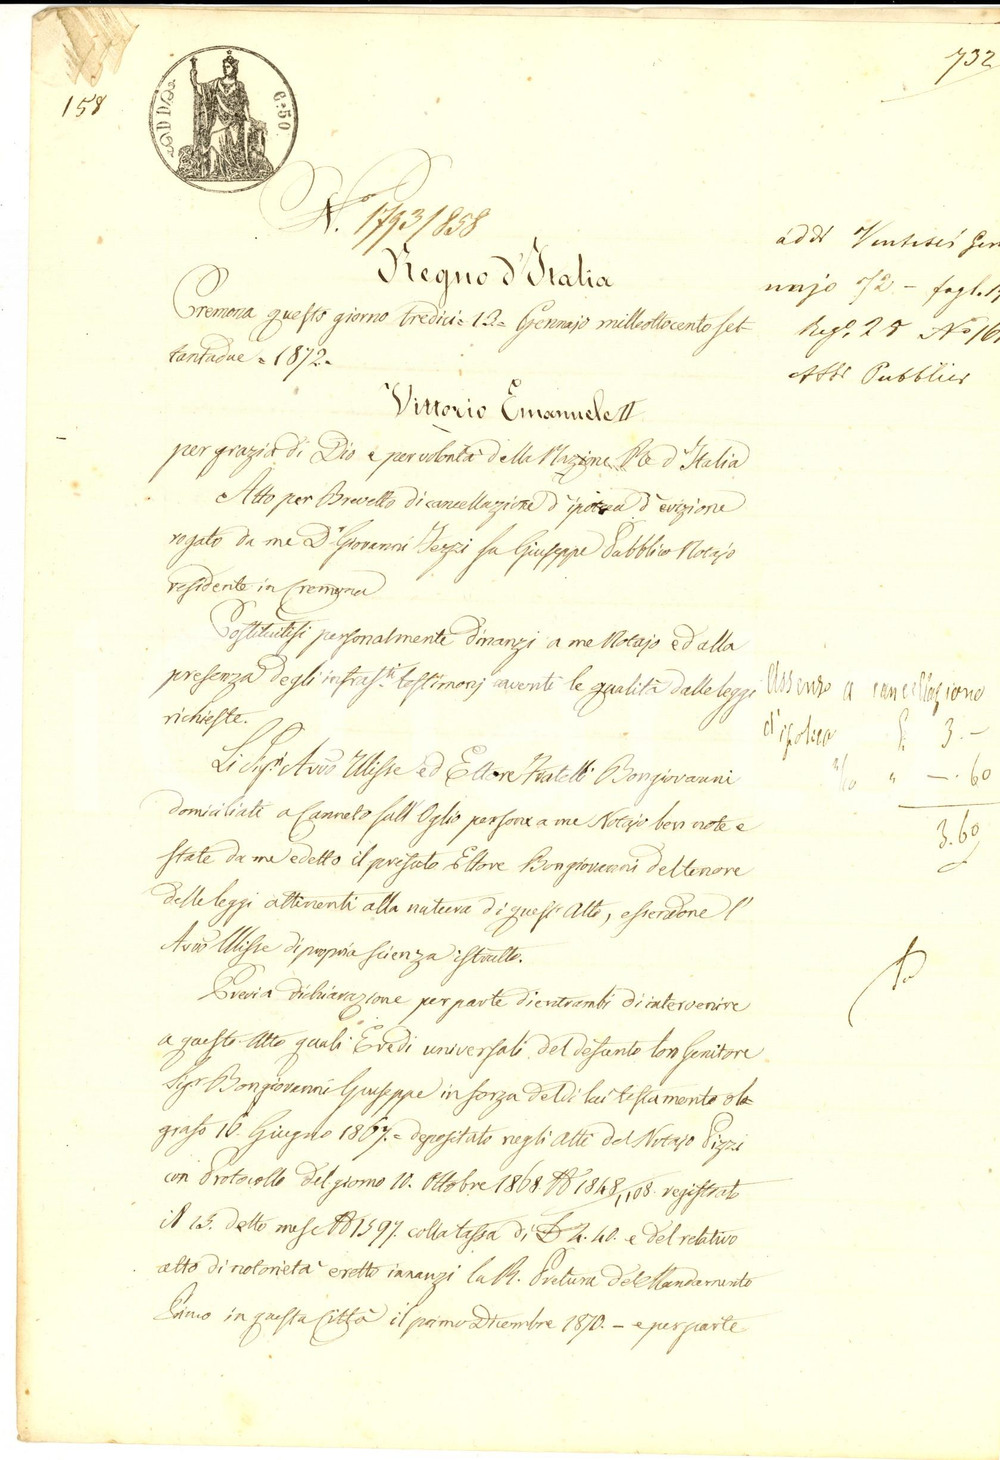 732
158
C: 50
N.º 1793/858
Regno d'Italia
Cremona questo giorno tredici = 13 = Gennajo milleottocento set
tantadue = 1872 =
Vittorio Emanuele II
per grazia di Dio e per volontà della Nazione Re d'Italia
Atto per Brevetto di cancellazione d'ipoteca d'evizione
rogato da me Dr Giovanni fu Giuseppe Pubblico Notajo
residente in Cremona
Costituitisi personalmente dinanzi a me Notajo ed alla
presenza degli infrasti testimonj aventi le qualità dalle leggi
richieste.
Li Sigri Avvo Ulisse ed Ettore Fratelli Bongiovanni
domiciliati a Canneto sull'Oglio persone a me Notajo ben note e
state da me edotto il prefato Ettore Bongiovanni del tenore
delle leggi attinenti alla natura di quest'Atto, essendone l'
Avvo Ulisse di propria scienza istrutto.
Previa dichiarazione per parte di entrambi di intervenire
a questo Atto quali Eredi universali del defunto loro Genitore
Sigr Bongiovanni Giuseppe in forza del di lui testamento olo-
grafo 16 Giugno 1867 = depositato negli Atti del Notajo Pizzi
con Protocollo del giorno 10. Ottobre 1868 N 1848/108 registrato
il 13. detto mese N 1597 colla tassa di L 2.40. e del relativo
atto di notorietà eretto innanzi la R. Pretura del Mandamento
Primo in questa Città il primo Dicembre 1870. — e per parte
addì Ventisei Gen
najo 72 - fogl.
Regº. 28 Nº 16
Atti Pubblici
Assenso a cancellazione
d'ipoteca L. 3. -
2/10 " — . 60
3.60